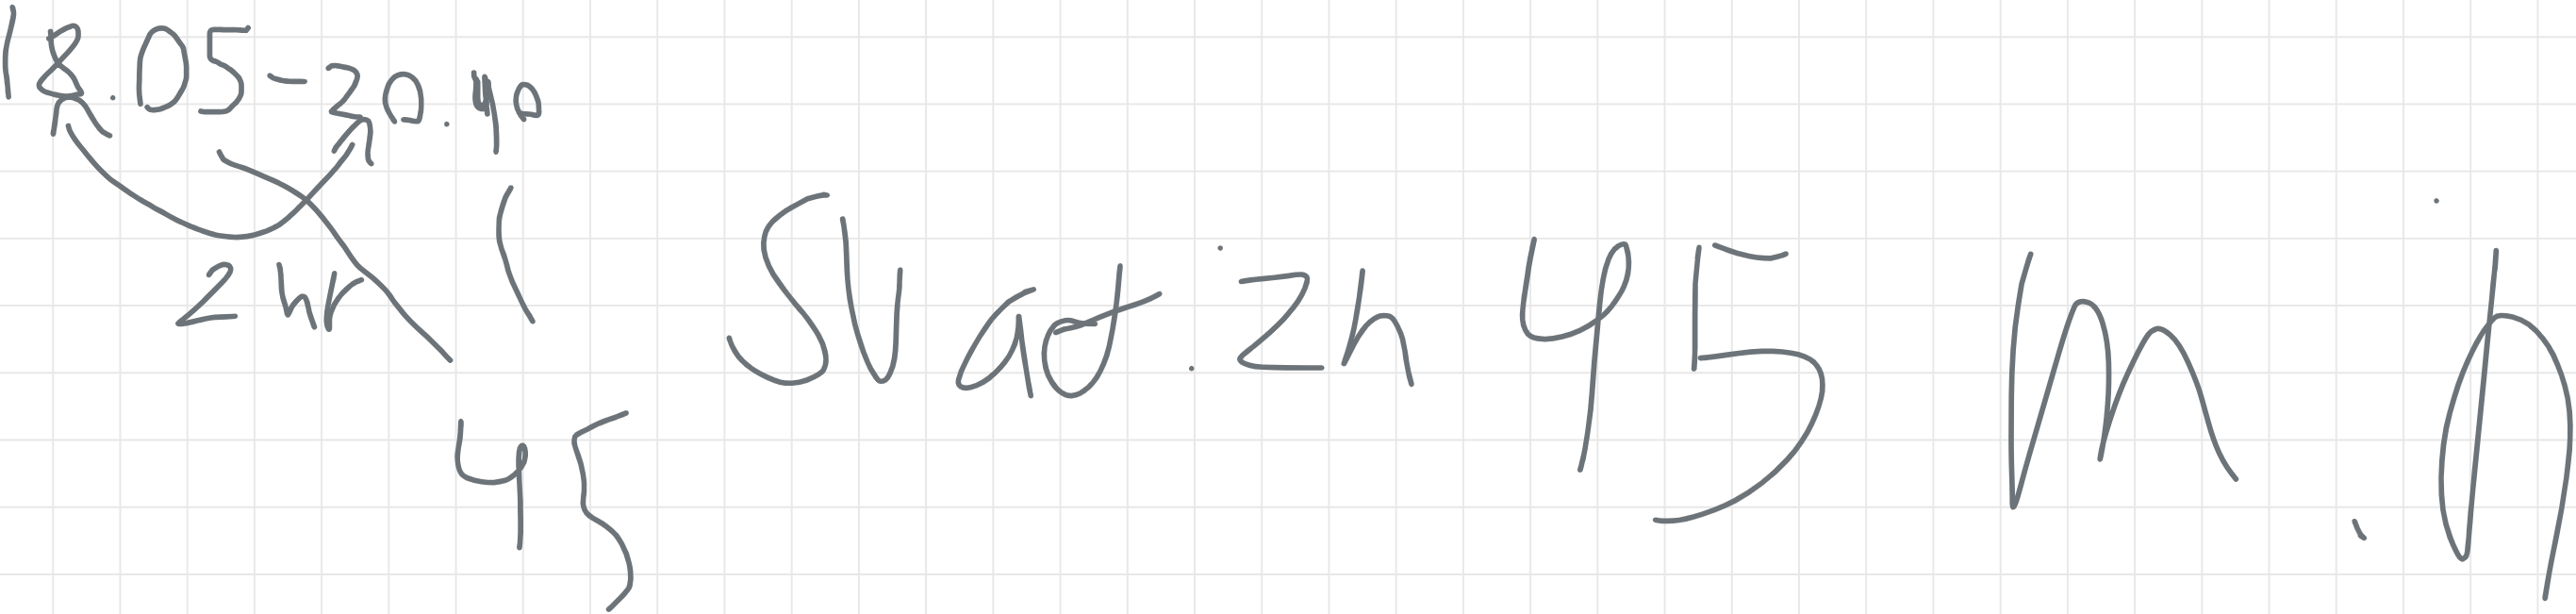 18.05-20.40
2 hr
45
Svar: 2h 45 min